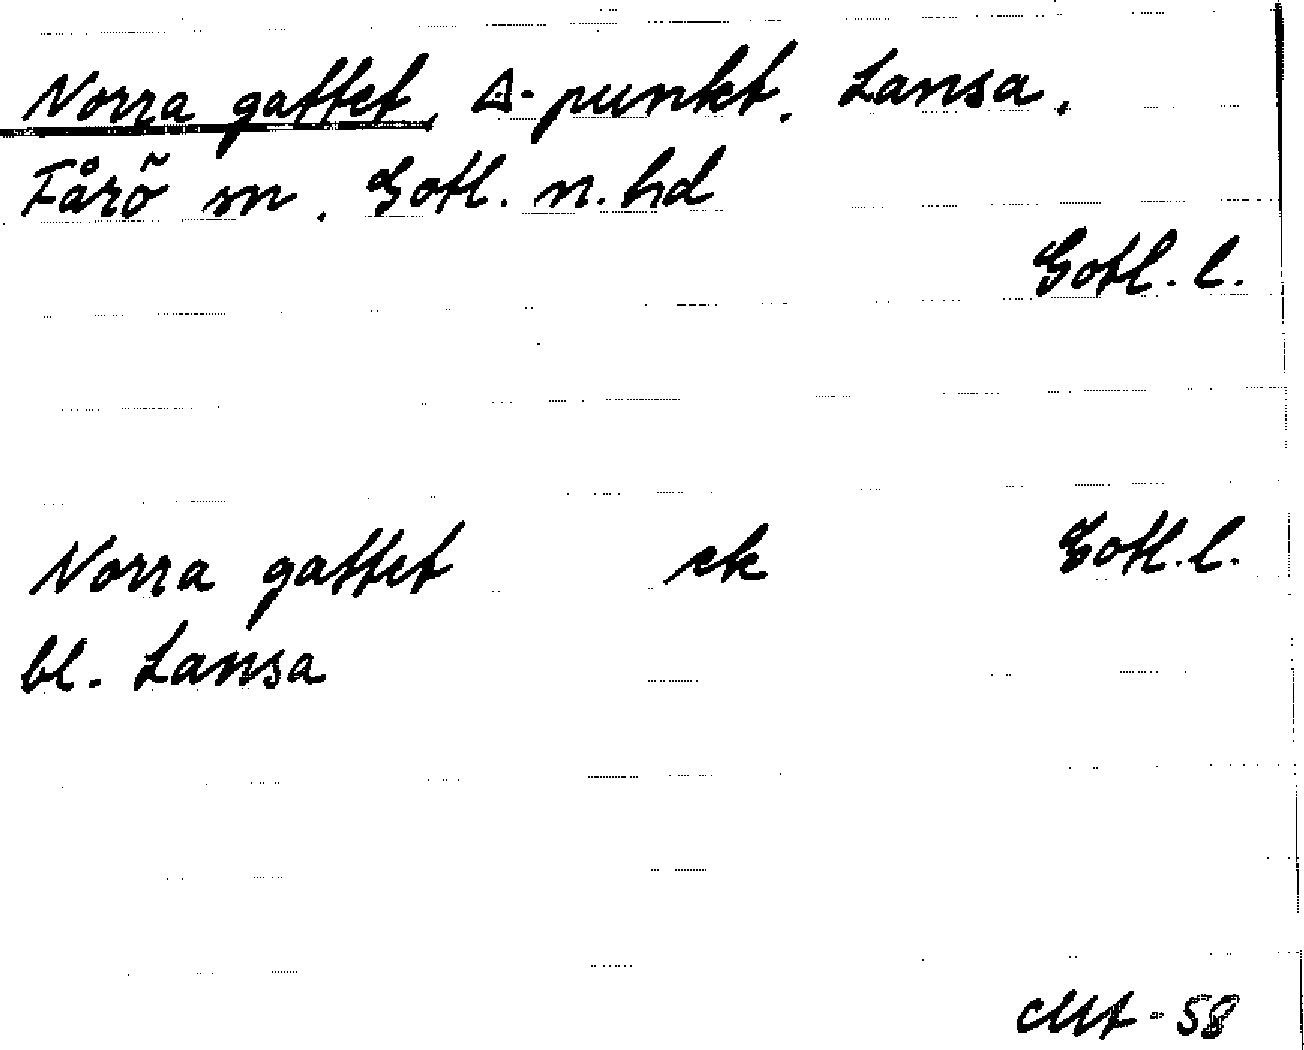 Norra gattet, ∆-punkt, Lansa,
Fårö sn, Gotl. n. hd
Gotl. l.
Norra gattet ek Gotl. l.
bl. Lansa
-58